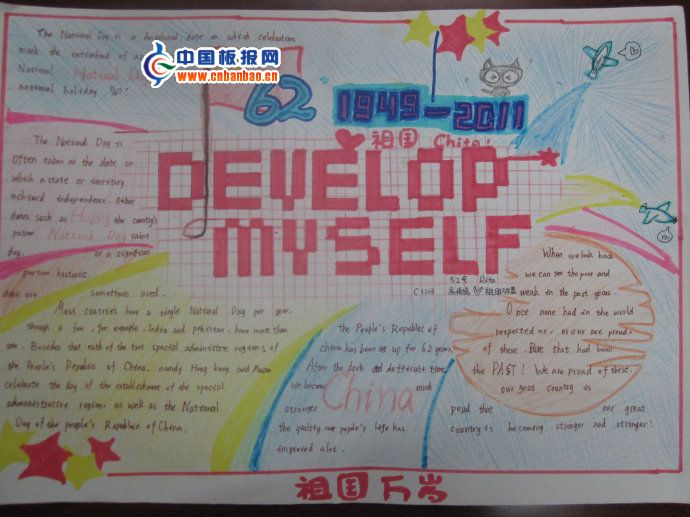 The National Day is a designated date on which celebration
mark the nationhood of a
National National Da
national holiday
中国板报网
www.cnbanbao.cn
62
1949-2011
祖国 China!
DEVELOP
MYSELF
The National Day is
Often taken as the date on
which a state or territory
achieved independence. Other
dates such as Happy the country's
patron National Day saint
day. or a signition
partron historic
date are sometimes used.
Most coutries have a single National Day per year.
though a few, for example, India and pakistan, have more than
one. Besides that each of the two special administre regions of
the People's Republic of China, namely Hong Kong and Macao
celebrate the day of the establishment of the special
administrative region, as well as the National
Day of the people's Republic of China.
C1113 52号 Rita
祖国万岁
The People's Republic of
china has been set up for 62 years.
After the dark and defficult time,
we become China much
stronger
The quality our people's life has
improved alot.
When we look back
we can see the poor and
weak in the past years.
Once none had in the world
respected us, or one are proud.
of these. But that had been
the PAST! We are proud of these.
our great country is
poud that our great
country is becoming stronger and stronger!
Yes!
祖国万岁